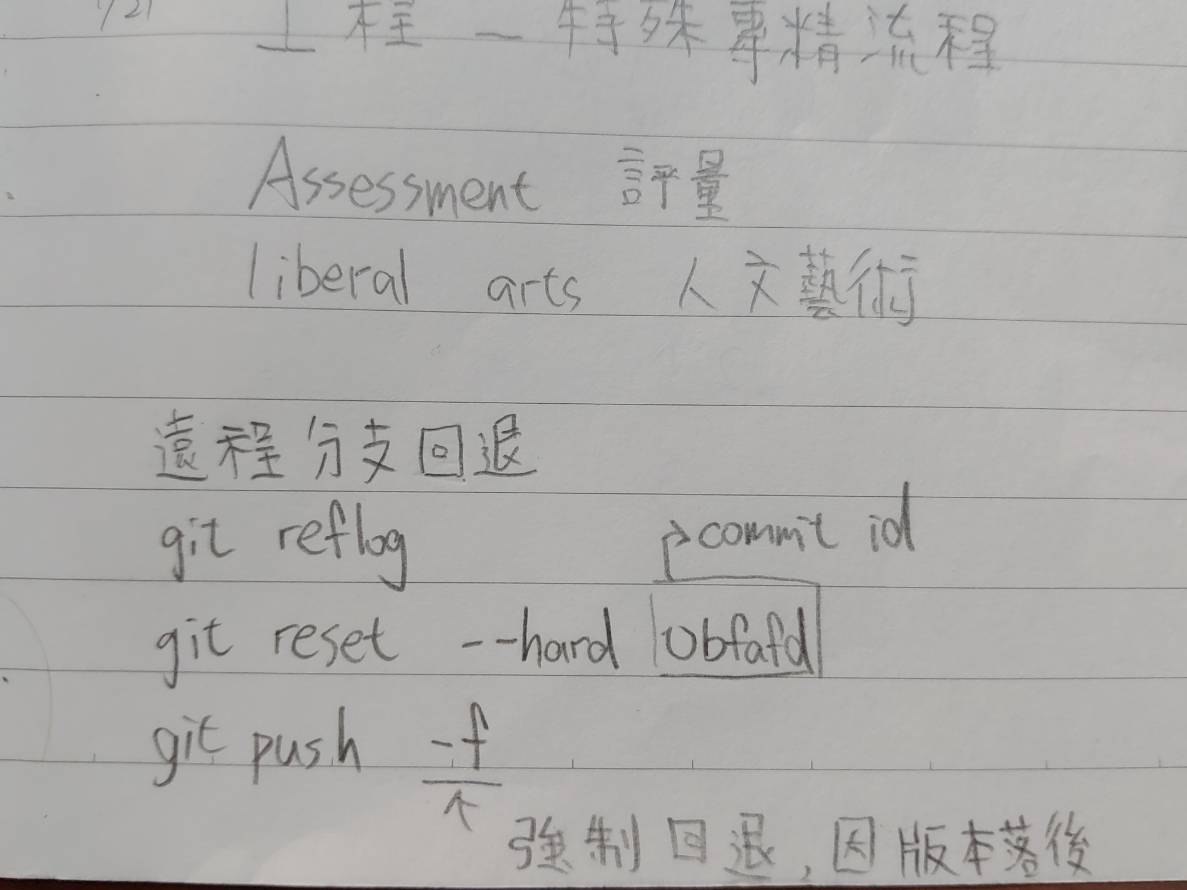 1/21 工程 — 特殊專精流程
Assessment 評量
liberal arts 人文藝術
遠程分支回退
git reflog
commit id
git reset --hard 0bfafd
git push -f
強制回退,因版本落後